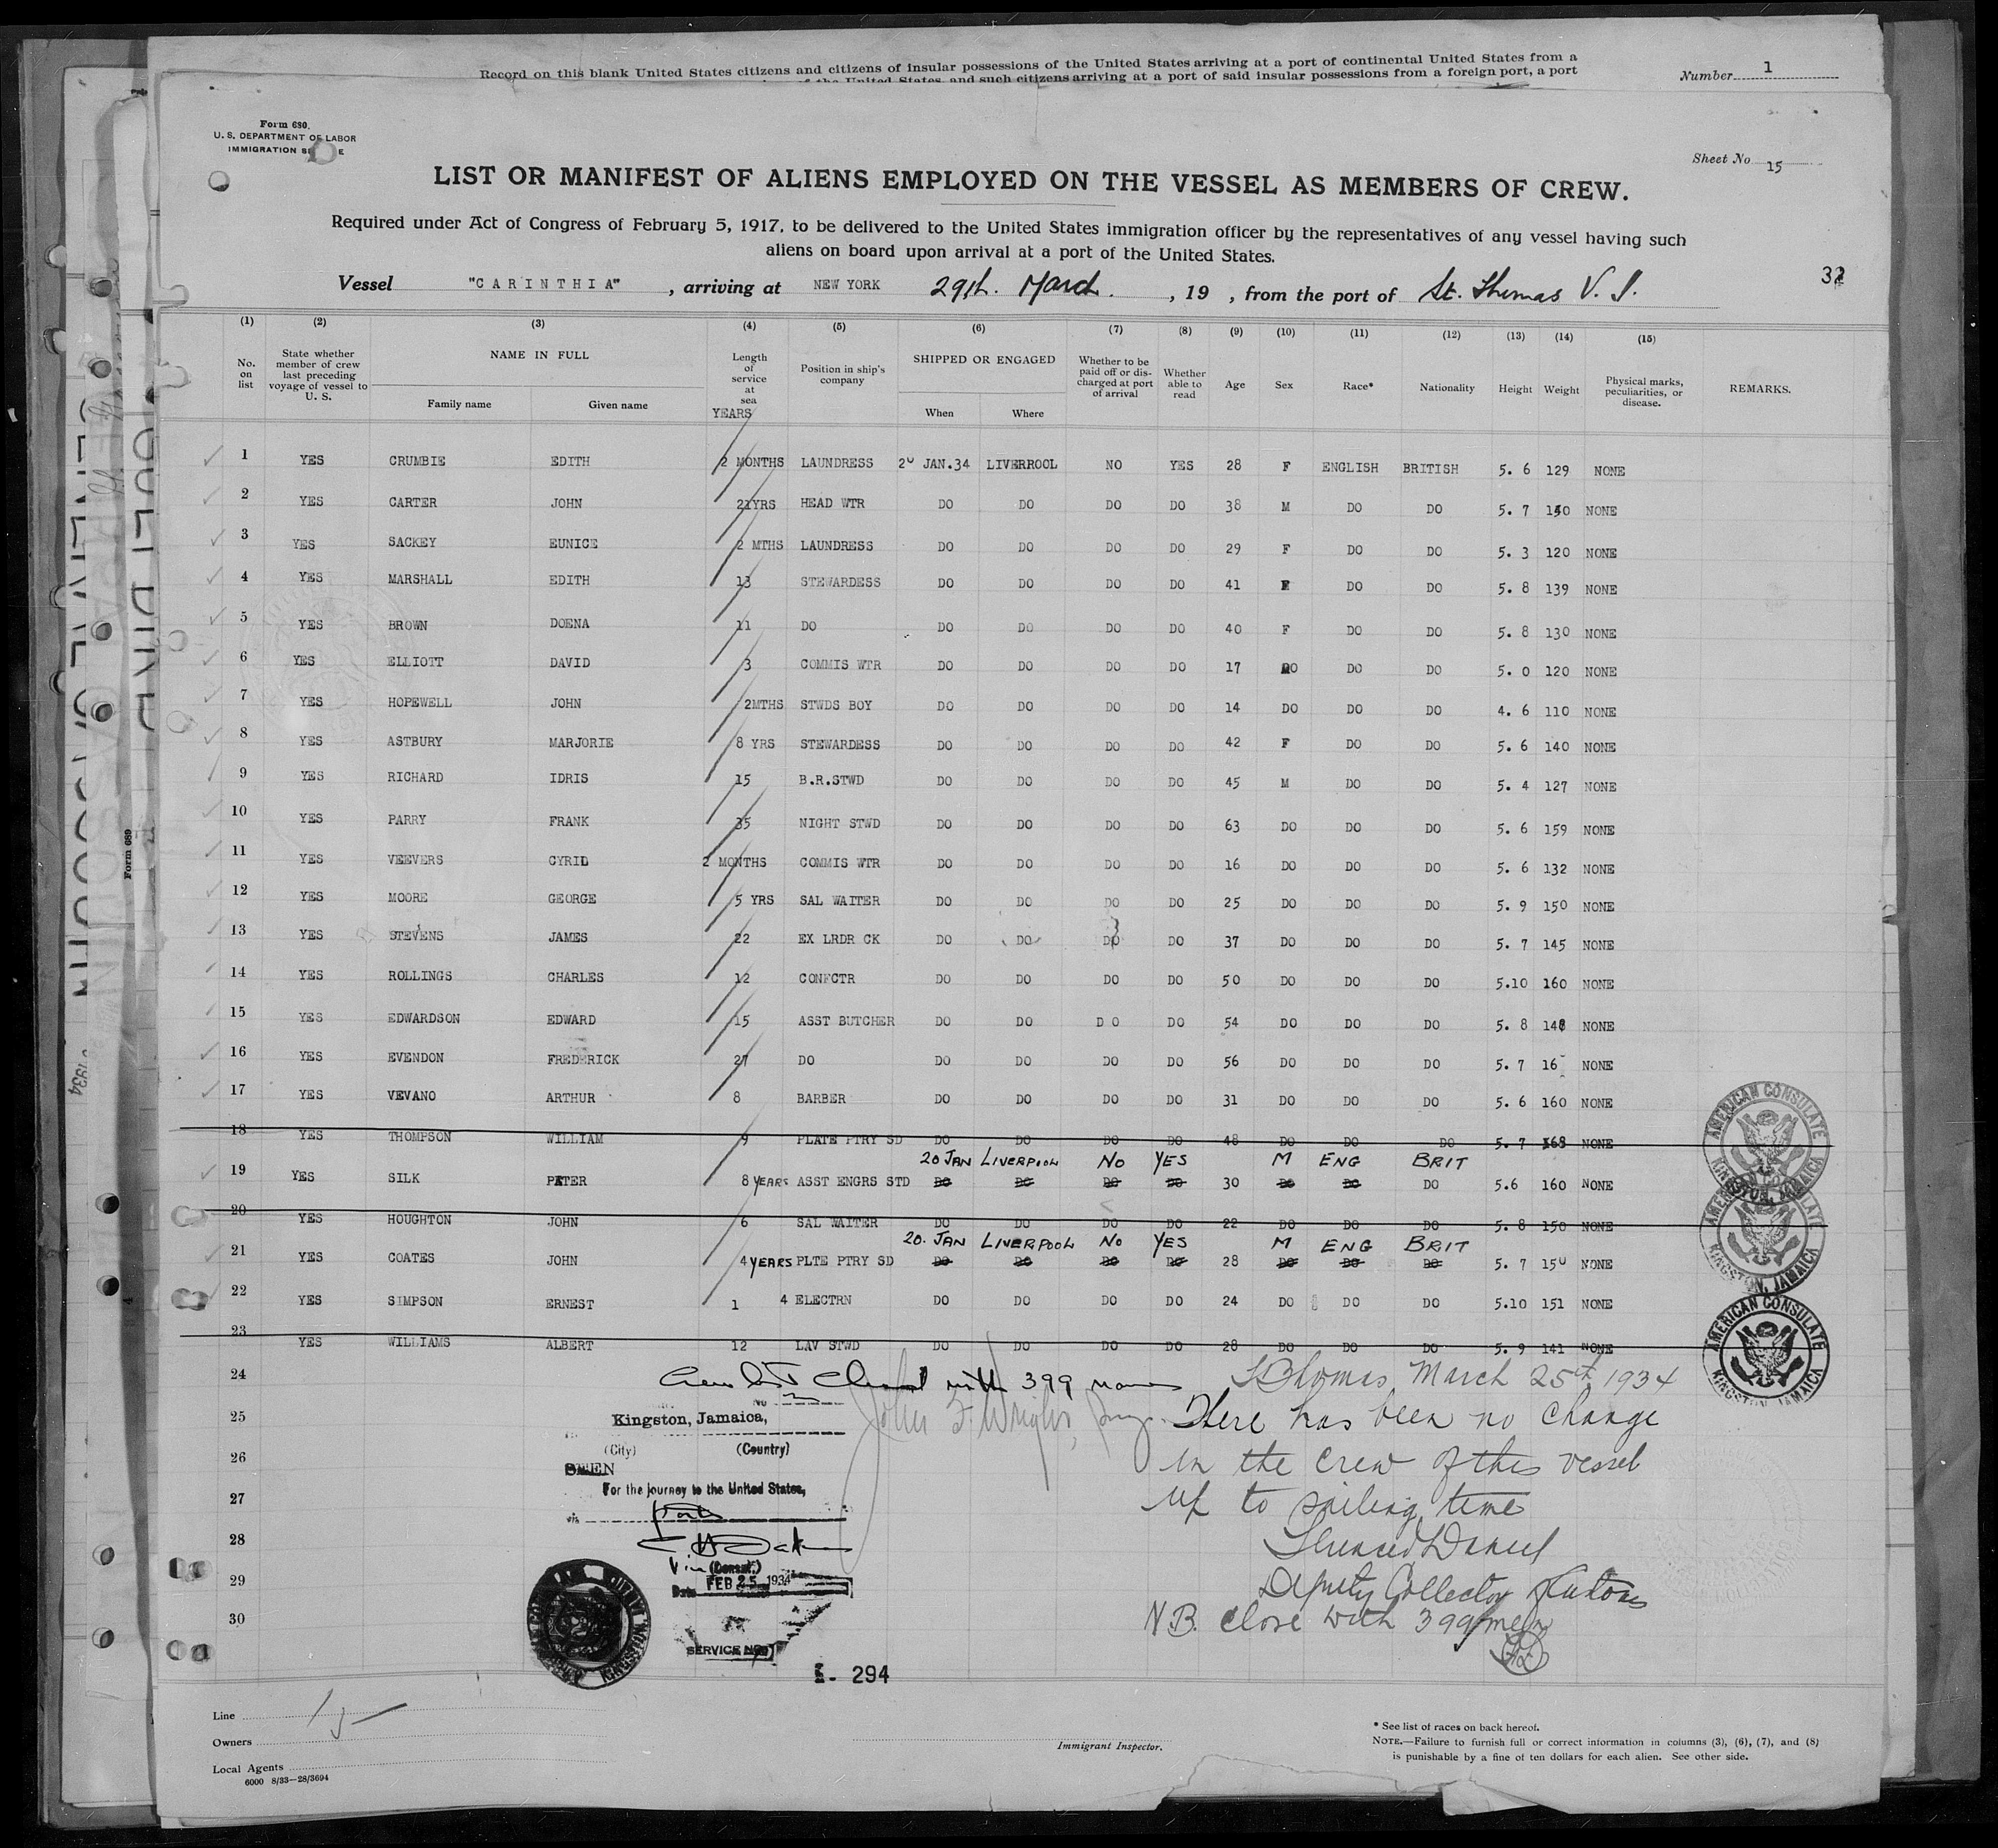 Record on this blank United States citizens and citizens of insular possessions of the United States arriving at a port of continental United States from a
of the United States, and such citizens arriving at a port of said insular possessions from a foreign port, a port
Number 1
Form 680.
U. S. DEPARTMENT OF LABOR
IMMIGRATION SE E
Sheet No 15
LIST OR MANIFEST OF ALIENS EMPLOYED ON THE VESSEL AS MEMBERS OF CREW.
Required under Act of Congress of February 5, 1917, to be delivered to the United States immigration officer by the representatives of any vessel having such
aliens on board upon arrival at a port of the United States.
Vessel "CARINTHIA", arriving at NEW YORK 29th. March., 19 , from the port of St. Thomas V. I.
(1) (2) (3) (4) (5) (6) (7) (8) (9) (10) (11) (12) (13) (14) (15)
No. on list State whether member of crew last preceding voyage of vessel to U. S. NAME IN FULL Family name Given name Length of service at sea YEARS Position in ship's company SHIPPED OR ENGAGED When Where Whether to be paid off or discharged at port of arrival Whether able to read Age Sex Race* Nationality Height Weight Physical marks, peculiarities, or disease. REMARKS.
1 YES CRUMBIE EDITH 2 MONTHS LAUNDRESS 20 JAN.34 LIVERROOL NO YES 28 F ENGLISH BRITISH 5. 6 129 NONE
2 YES CARTER JOHN 21YRS HEAD WTR DO DO DO DO 38 M DO DO 5. 7 150 NONE
3 YES SACKEY EUNICE 2 MTHS LAUNDRESS DO DO DO DO 29 F DO DO 5. 3 120 NONE
4 YES MARSHALL EDITH 13 STEWARDESS DO DO DO DO 41 F DO DO 5. 8 139 NONE
5 YES BROWN DOENA 11 DO DO DO DO DO 40 F DO DO 5. 8 130 NONE
6 YES ELLIOTT DAVID 3 COMMIS WTR DO DO DO DO 17 DO DO DO 5. 0 120 NONE
7 YES HOPEWELL JOHN 2MTHS STWDS BOY DO DO DO DO 14 DO DO DO 4. 6 110 NONE
8 YES ASTBURY MARJORIE 8 YRS STEWARDESS DO DO DO DO 42 F DO DO 5. 6 140 NONE
9 YES RICHARD IDRIS 15 B.R.STWD DO DO DO DO 45 M DO DO 5. 4 127 NONE
10 YES PARRY FRANK 35 NIGHT STWD DO DO DO DO 63 DO DO DO 5. 6 159 NONE
11 YES VEEVERS CYRIL 2 MONTHS COMMIS WTR DO DO DO DO 16 DO DO DO 5. 6 132 NONE
12 YES MOORE GEORGE 5 YRS SAL WAITER DO DO DO DO 25 DO DO DO 5. 9 150 NONE
13 YES STEVENS JAMES 22 EX LRDR CK DO DO DO DO 37 DO DO DO 5. 7 145 NONE
14 YES ROLLINGS CHARLES 12 CONFCTR DO DO DO DO 50 DO DO DO 5.10 160 NONE
15 YES EDWARDSON EDWARD 15 ASST BUTCHER DO DO DO DO 54 DO DO DO 5. 8 148 NONE
16 YES EVENDON FREDERICK 27 DO DO DO DO DO 56 DO DO DO 5. 7 16 NONE
17 YES VEVANO ARTHUR 8 BARBER DO DO DO DO 31 DO DO DO 5. 6 160 NONE
18 YES THOMPSON WILLIAM 9 PLATE PTRY SD DO DO DO DO 48 DO DO DO 5. 7 168 NONE
20 JAN LIVERPOOL NO YES M ENG BRIT
19 YES SILK PETER 8 YEARS ASST ENGRS STD DO DO DO DO 30 DO DO DO 5.6 160 NONE
20 YES HOUGHTON JOHN 6 SAL WAITER DO DO DO DO 22 DO DO DO 5. 8 150 NONE
20. JAN LIVERPOOL NO YES M ENG BRIT
21 YES COATES JOHN 4 YEARS PLTE PTRY SD DO DO DO DO 28 DO DO DO 5. 7 150 NONE
22 YES SIMPSON ERNEST 1 4 ELECTRN DO DO DO DO 24 DO DO DO 5.10 151 NONE
23 YES WILLIAMS ALBERT 12 LAV STWD DO DO DO DO 28 DO DO DO 5. 9 141 NONE
24 Crew list Closed with 399 names St Thomas, March 25th, 1934
25 Kingston, Jamaica, There has been no change
(City) (Country)
26 SEEN in the crew of this vessel
27 For the journey to the United States, up to sailing time
28
29 (Consul.) Date FEB 25 1934 Deputy Collector of Customs
30 N.B. Close with 399 men
SERVICE NO.
294
AMERICAN CONSULATE KINGSTON, JAMAICA
AMERICAN CONSULATE KINGSTON, JAMAICA
AMERICAN CONSULATE KINGSTON, JAMAICA
Line
Owners
Local Agents
6000 8/33—28/3694
Immigrant Inspector.
* See list of races on back hereof.
NOTE.—Failure to furnish full or correct information in columns (3), (6), (7), and (8)
is punishable by a fine of ten dollars for each alien. See other side.
Form 689
1934